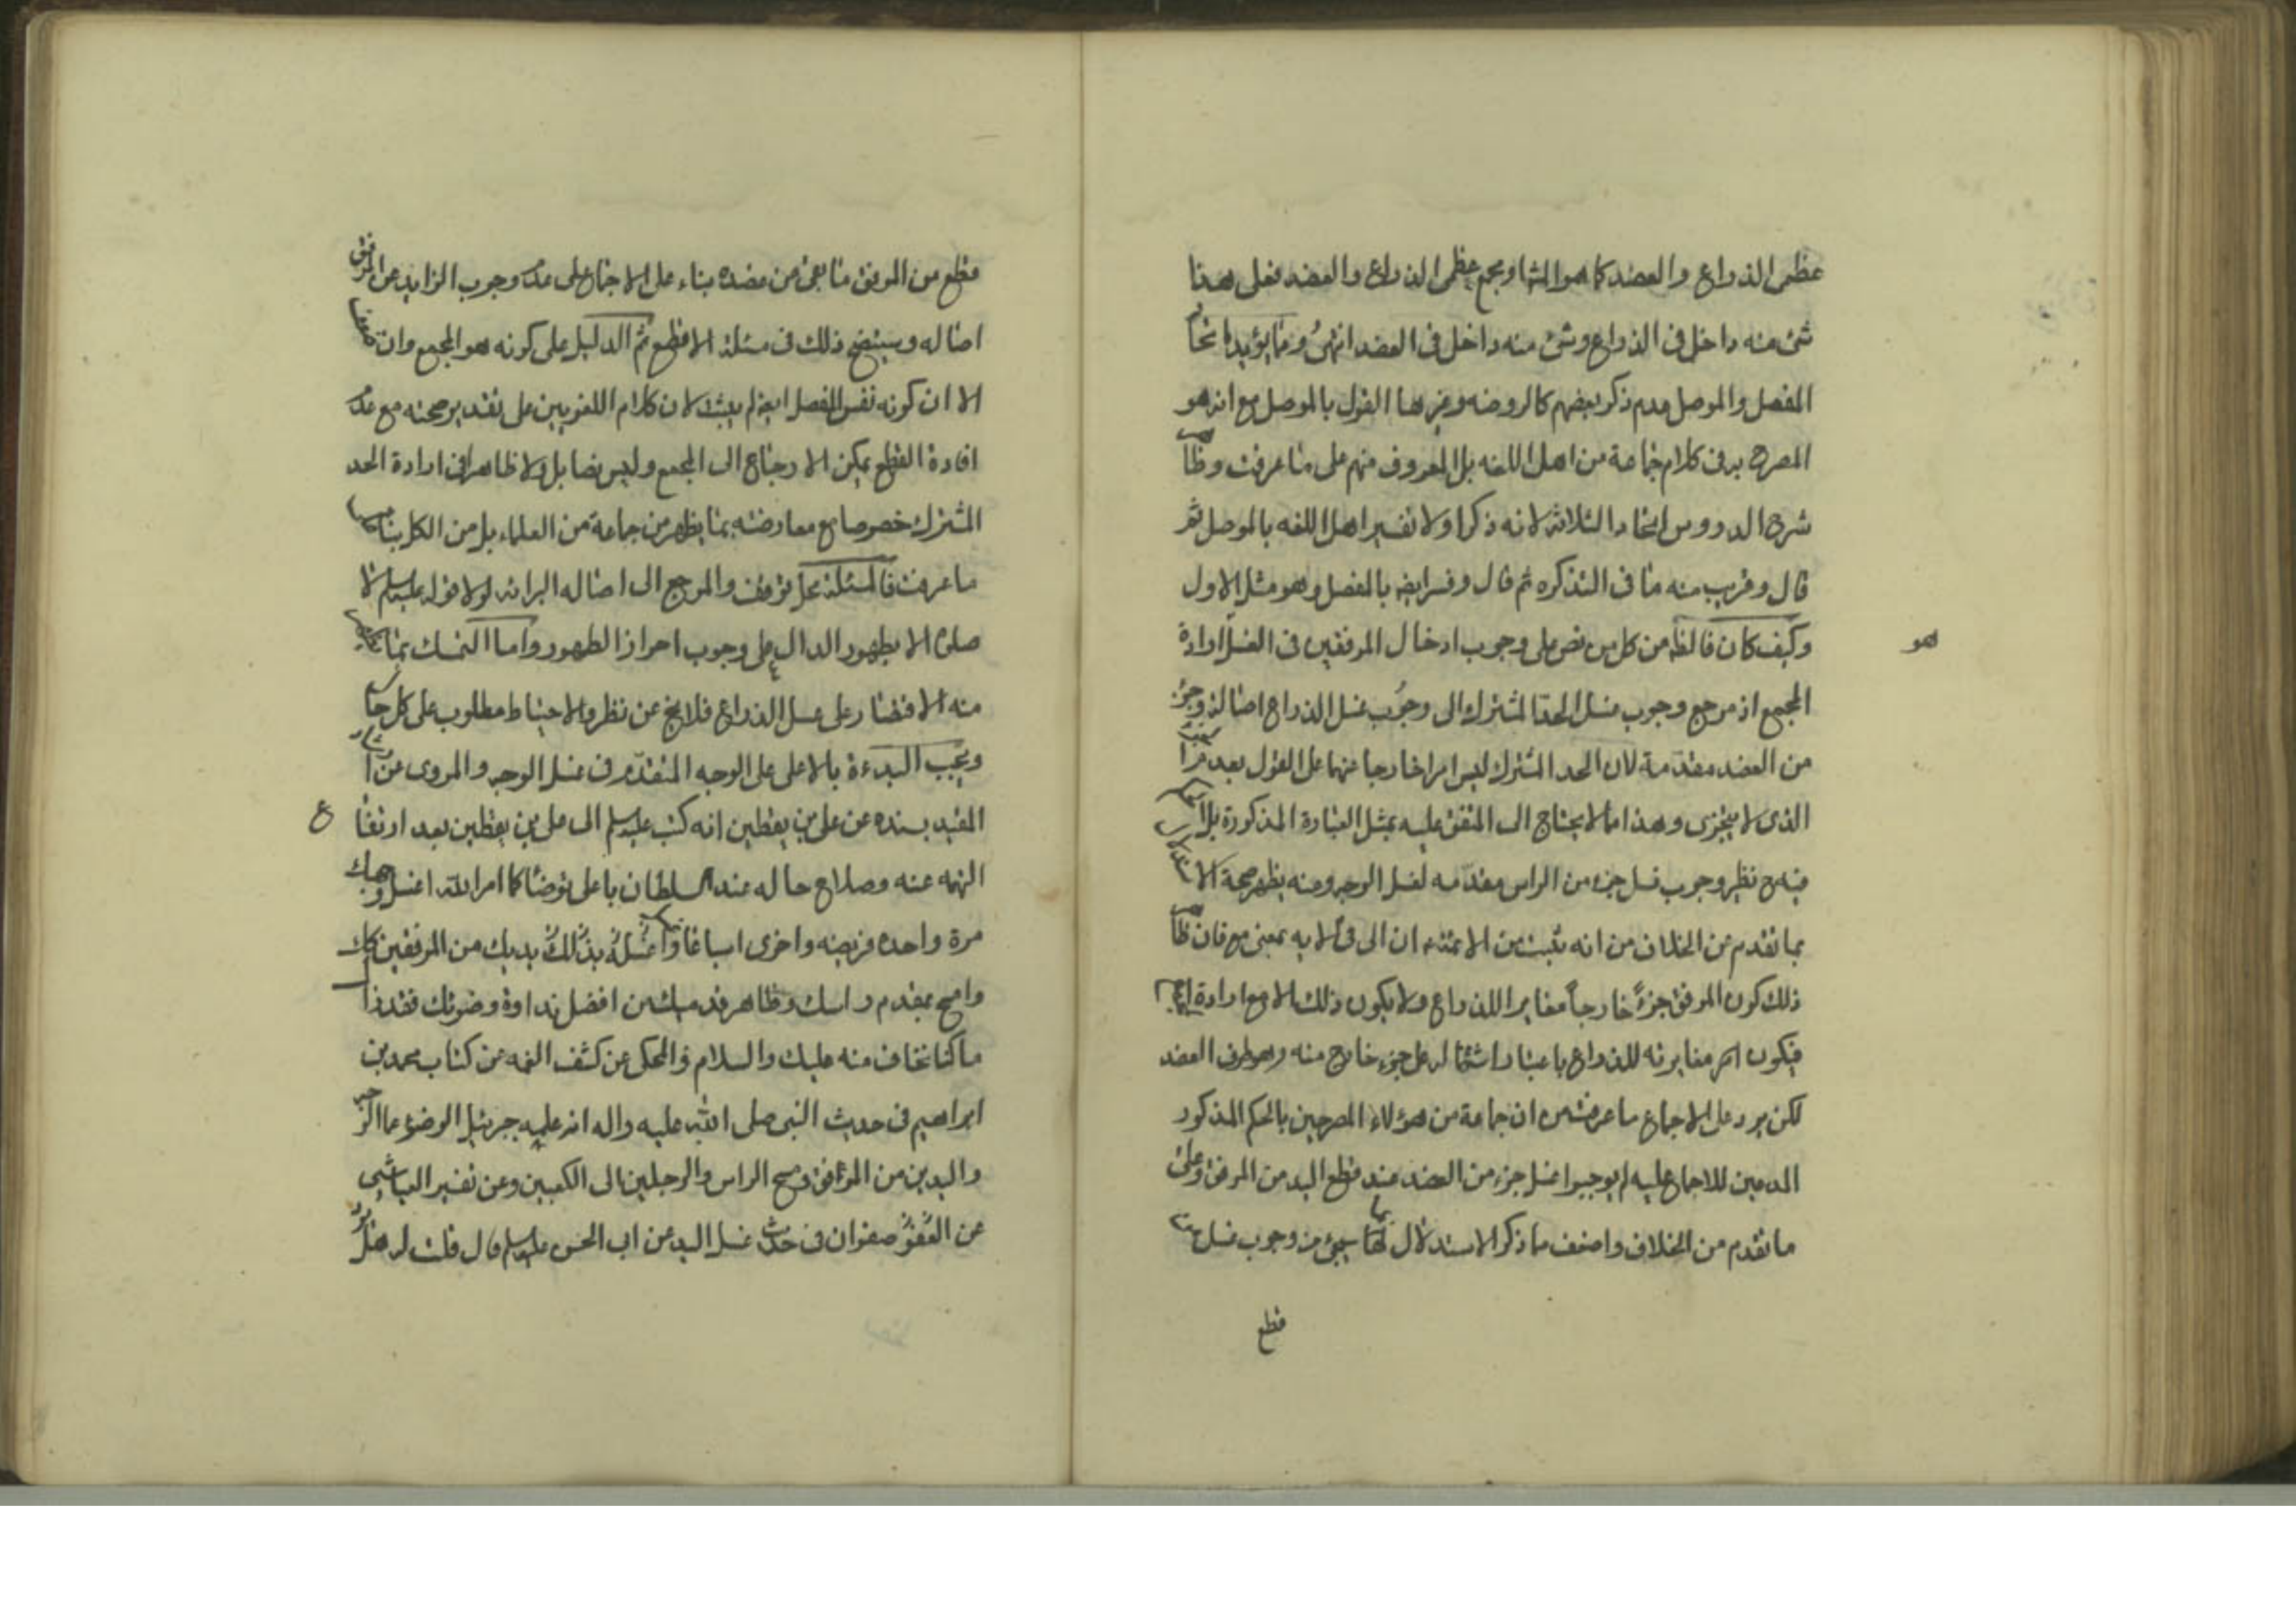 عظمى الذراع والعضد كما هو المشا او مجمع عظمى الذراع والعضد فعلى هذا
شئ منه داخل فى الذراع وشئ منه داخل فى العضد انتهى ومما يؤيد اتحا
المفصل والموصل عدم ذكر بعضهم كالروضه وغيرها القول بالموصل مع انه هو
المصرح به فى كلام جماعة من اهل اللغه بل المعروف منهم على ما عرفت وظا
شرح الدروس اتحاد الثلاثة لانه ذكر اولا تفسير اهل اللغه بالموصل ثم
قال وقريب منه ما فى التذكره ثم قال وفسر ايضا بالمفصل وهو مثل الاول
وكيف كان فالظ من كل من نص على وجوب ادخال المرفقين فى الغسل ارادة
هو
المجمع اذ مرجع وجوب غسل الحد المشترك الى وجوب غسل الذراع اصالة وجزء
من العضد مقدمة لان الحد المشترك ليس امرا خارجا عنهما على القول بعدم
الذى لا يتجزى وهذا مما لا يحتاج الى المتفق عليه بمثل العبارة المذكورة بل
فيه ح نظير وجوب غسل جزء من الراس مقدمه لغسل الوجه ومنه يظهر صحة الا
بما تقدم عن الخلاف من انه ثبت عن الائمة ان الى فى الايه بمعنى مع فان ظا
ذلك كون المرفق جزءً خارجاً مغايرا للذراع ولا يكون ذلك الا مع ارادة
فيكون مغايرته للذراع باعتبار اشتماله على جزء خارج منه وهو طرف العضد
لكن يرد على الاجماع ما عرفت من ان جماعة من هؤلاء المصرحين بالحكم المذكور
المدعين للاجماع عليه لم يوجبوا غسل جزء من العضد عند قطع اليد من المرفق وعلى
ما تقدم من الخلاف واضعف مما ذكر الاستدلال لها بما سيجئ من وجوب غسل
قطع
قطع من المرفق ما بقى من عضده بناء على الاجماع على عدم وجوب الزايد عن المرفق
اصاله وسيتضح ذلك فى مسئلة الاقطع ثم الدليل على كونه هو المجمع وان
الا ان كونه نفس المفصل ايضا لم يثبت لان كلام اللغويين على تقدير صحته مع عدم
افادة القطع يمكن الارجاع الى المجمع وليس نصا بل ولا ظاهرا فى ارادة الحد
المشترك خصوصا مع معارضته بما يظهر من جماعة من العلماء بل من الكل بناء
ما عرفت فالمسئلة محل توقف والمرجع الى اصاله البرائه لولا قوله عليه السلم لا
صلوة الا بطهور الدال على وجوب احراز الطهور واما التمسك بما
منه الاقتصار على غسل الذراع فلا يخ عن نظر والاحتياط مطلوب على كل حا
ويجب البدءة بالاعلى على الوجه المتقدم فى غسل الوجه والمروى عن
المفيد بسنده عن على بن يقطين انه كتب عليه السلم الى على بن يقطين بعد ارتفا
ع
التهمه عنه وصلاح حاله عند السلطان يا على توضا كما امر الله اغسل وجهك
مرة واحده فريضه واخرى اسباغا واغسل يديك من المرفقين كك
وامسح بمقدم راسك وظاهر قدميك من افضل نداوة وضوئك فقد زا
ما كنا نخاف منه عليك والسلام والمحكى عن كشف الغمه عن كتاب محمد بن
ابراهيم فى حديث النبى صلى الله عليه واله انه علمه جبرئيل الوضوء
واليدين من المرافق ومسح الراس والرجلين الى الكعبين وعن تفسير العياشى
عن صفوان فى حديث غسل اليد عن ابى الحسن عليه السلم قال قلت له هل